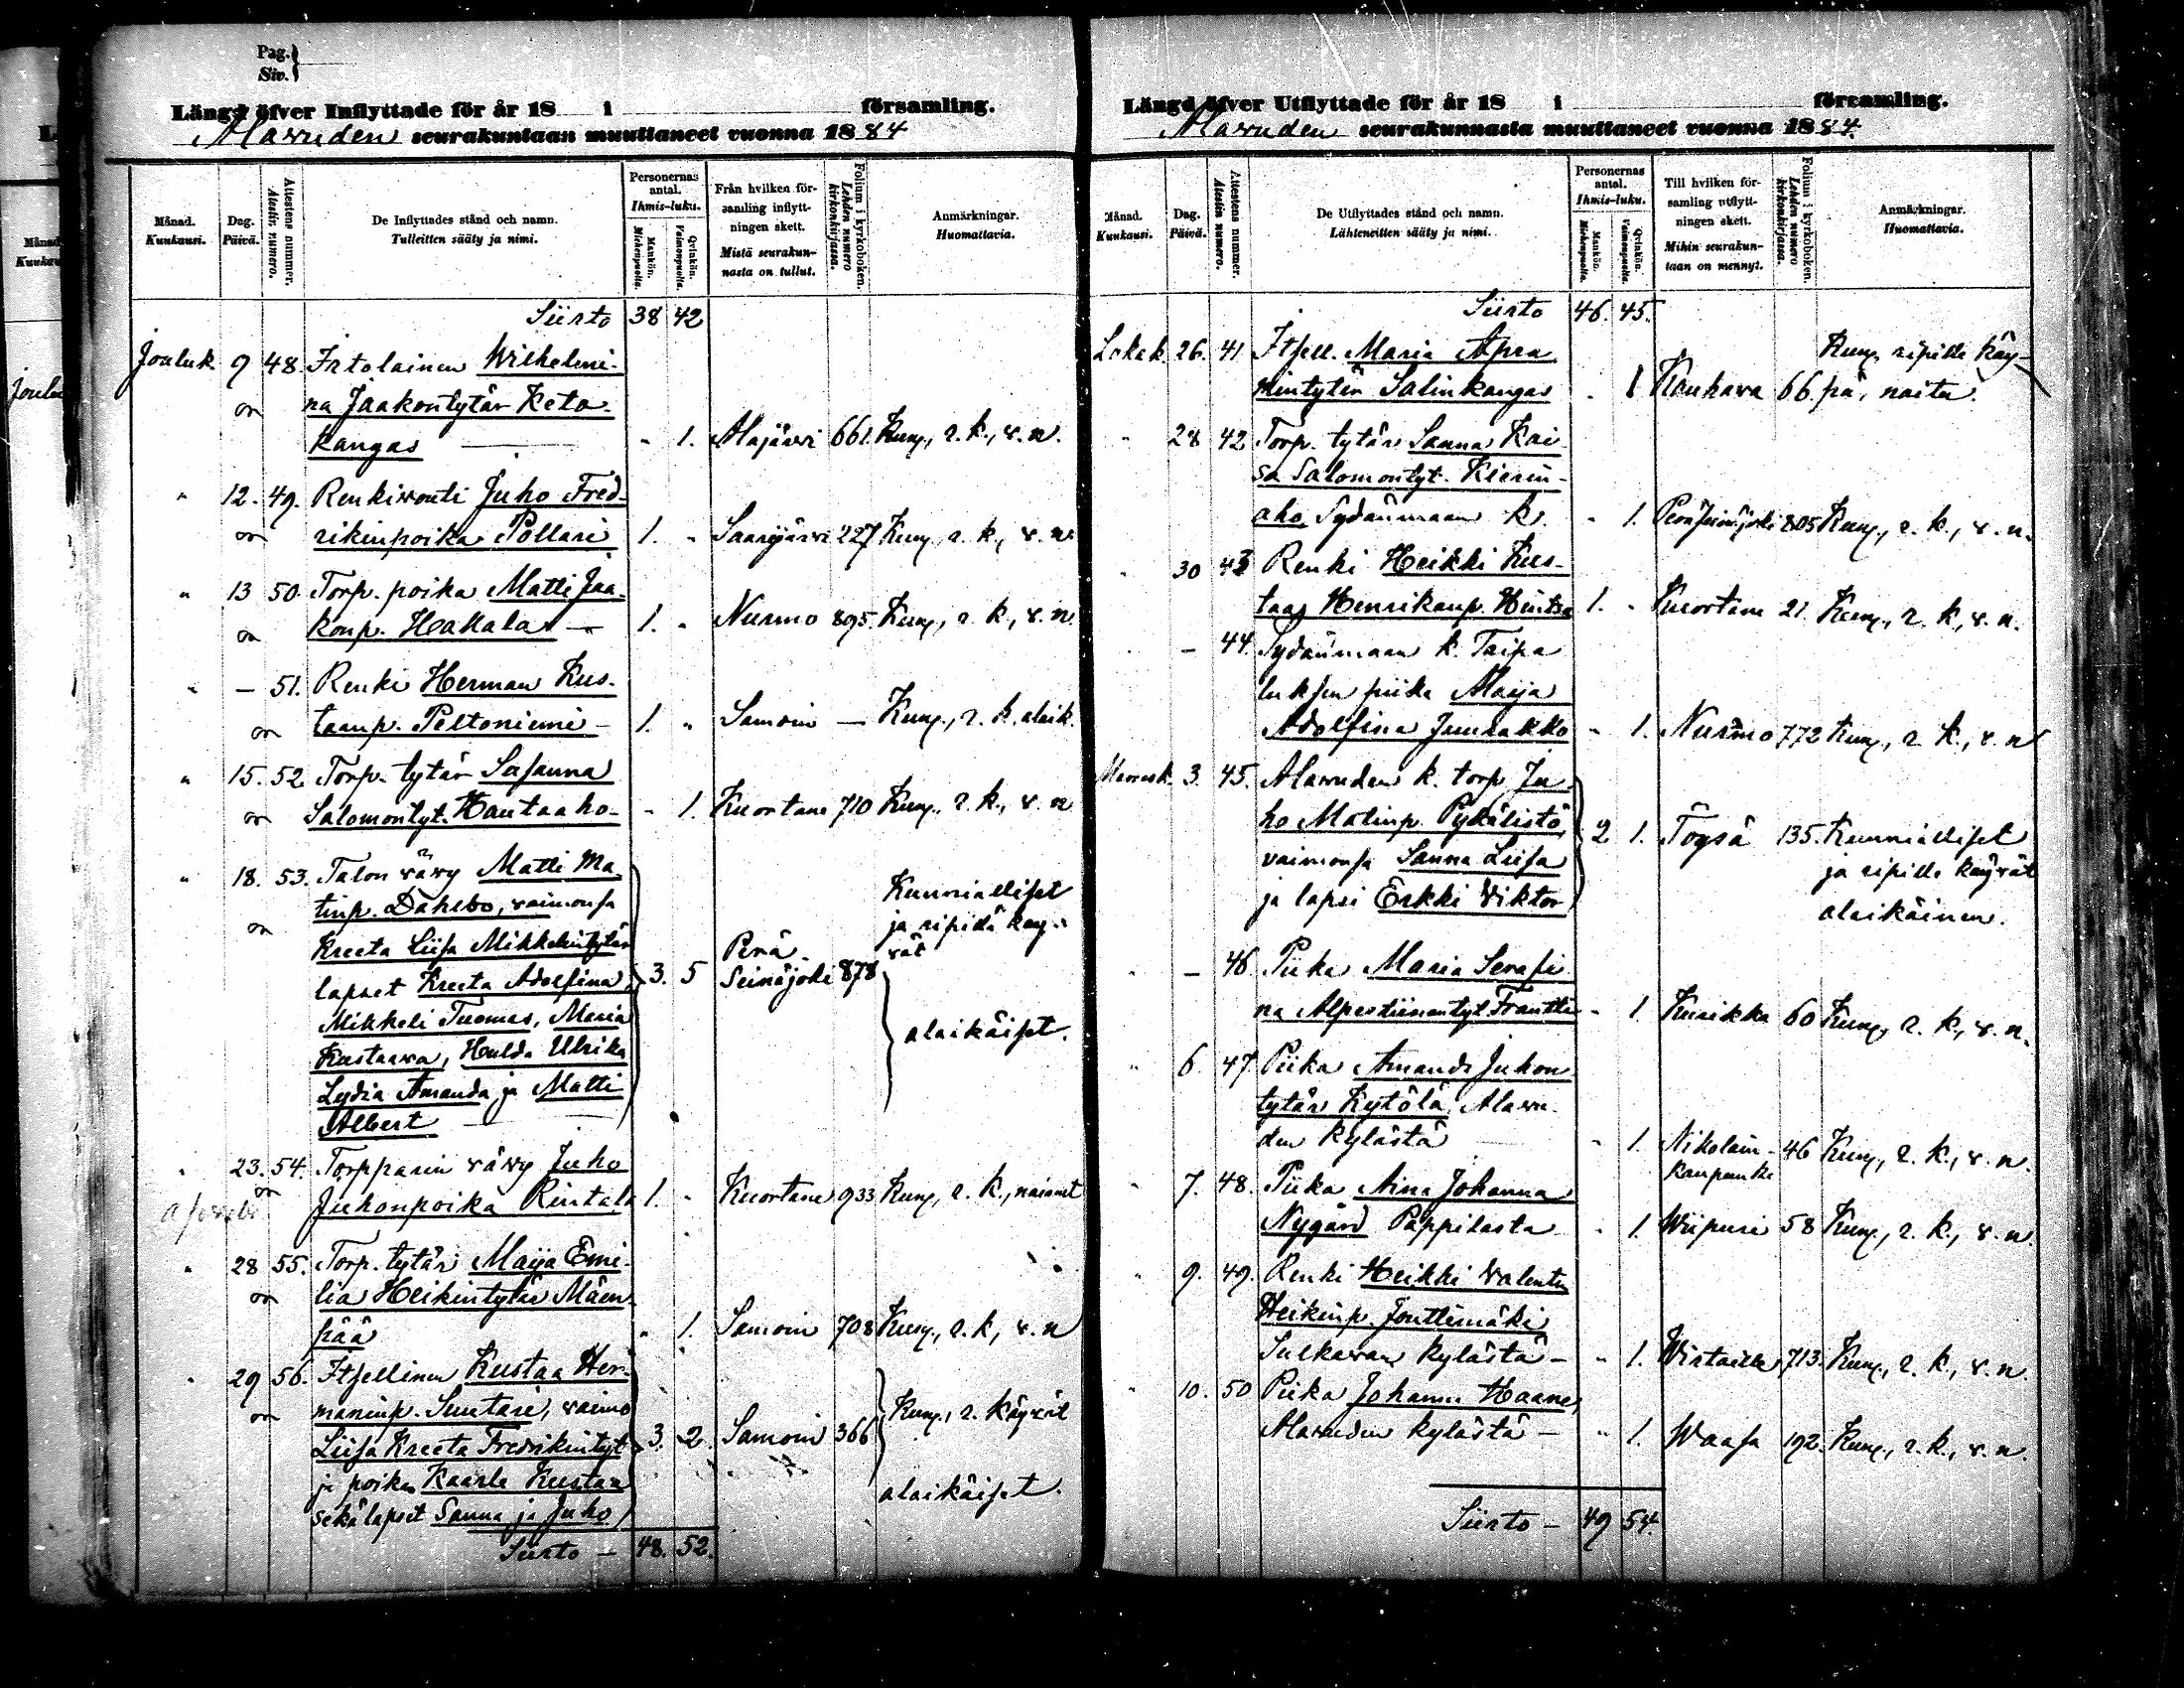 Pag.
Siv.
Längd öfver Inflyttade för år 18 i församling.
Alavuden seurakuntaan muuttaneet vuonna 1884
Månad. Kuukausi.
Dag. Päivä.
Attestens nummer. Atestin numero.
De Inflyttades stånd och namn. Tulleitten sääty ja nimi.
Personernas antal. Ihmis-luku.
Mankön. Miehenpuolta.
Qvinkön. Vaimonpuolta.
Från hvilken församling inflyttningen skett. Mistä seurakunnasta on tullut.
Folium i kyrkoboken. Lehden numero kirkonkirjassa.
Anmärkningar. Huomattavia.
Siirto 38 42
Jouluk. 9 48. Irtolainen Wilhelmi-
na Jaakontytär Keto-
kangas - 1. Alajärvi 661. Kunn., r. k., v. n.
" 12. 49. Renkivouti Juho Fred-
rikinpoika Pollari 1. " Saarijärvi 227 Kunn, r. k., v. n.
" 13 50. Torp. poika Matti Jaa-
konp. Hakala - 1. " Nurmo 895. Kunn., r. k., v. n.
" - 51. Renki Herman Kus-
taanp. Peltoniemi - 1. " Samoin - Kunn., r. k. alaik.
" 15. 52. Torp. tytär Susanna
Salomontyt. Hautaaho - - 1. Kuortane 710 Kunn., r. k., v. n
" 18. 53. Talon vävy Matti Ma-
tinp. Dahlbo, vaimonsa
Kreeta Liisa Mikkelintytär
lapset Kreeta Adolfina, 3. 5 Perä-
Seinäjoki 878
Kunnialliset
ja ripillä käy-
vät
Mikkeli Tuomas, Maria
Kustaava, Hulda Ulrika
Lydia Amanda ja Matti
Albert
alaikäiset.
" 23. 54. Torpparin vävy Juho
Juhonpoika Rintala 1. " Kuortane 933 Kunn, r. k., nainut
" 28 55. Torp. tytär Maija Emi-
lia Heikintytär Mäen-
pää " 1. Samoin 708 Kunn., r. k, v. n
" 29 56. Itsellinen Kustaa Her-
maninp. Suutari, vaimo
Liisa Kreeta Fredrikintyt 3. 2. Samoin 366 Kunn., r. käyvät
ja poika Kaarle Kustaa
sekä lapset Sanna ja Juho
alaikäiset.
Siirto - 48. 52.
Längd öfver Utflyttade för år 18 i församling.
Alavuden seurakunnasta muuttaneet vuonna 1884.
Månad. Kuukausi.
Dag. Päivä.
Attestens nummer. Atestin numero.
De Utflyttades stånd och namn. Lähteneitten sääty ja nimi.
Personernas antal. Ihmis-luku.
Mankön. Miehenpuolta.
Qvinkön. Vaimonpuolta.
Till hvilken församling utflyttningen skett. Mihin seurakuntaan on mennyt.
Folium i kyrkoboken. Lehden numero kirkonkirjassa.
Anmärkningar. Huomattavia.
Siirto 46. 45.
Lokak. 26. 41 Itsell. Maria Apra-
mintytär Salinkangas . 1 Kauhava 66. Kunn. ripillä käy-
pä, naitu.
" 28 42 Torp. tytär Sanna Kai-
sa Salomontyt. Kierin-
aho Sydänmaan k. " 1. Peräseinäjoki 805 Kunn., r. k., v. n.
" 30 43 Renki Heikki Kus-
taa Henrikanp. Hintsa 1. " Kuortane 21. Kunn., r. k., v. n.
- 44. Sydänmaan k. Taipa
luksen piika Maija
Adolfina Juurakko " 1. Nurmo 772 Kunn., r. k., v. n
Marrask. 3. 45. Alavuden k. torp. Ju-
ho Matinp. Pykälistö,
vaimonsa Sanna Liisa
ja lapsi Erkki Viktor 2 1. Töysä 135. Kunnialliset
ja ripillä käyvät
alaikäinen.
- 46. Piika Maria Serafi-
na Alpertiinantyt Frantti " 1. Kurikka 60 Kunn, r. k., v. n.
" 6. 47 Piika Amanda Juhon
tytär Kytölä, Alavu-
den kylästä " 1. Nikolain-
kaupunki 46 Kunn, r. k., v. n.
" 7. 48. Piika Aina Johanna
Nygård Pappilasta " 1. Wiipuri 58 Kunn., r. k., v. n.
" 9. 49. Renki Heikki Valentin
Heikinp. Jouttimäki
Sulkavan kylästä - " 1. Wirtailla 713. Kunn., r. k., v. n.
" 10. 50 Piika Johanna Haane,
Alavuden kylästä - " 1. Waasa 192. Kunn., r. k., v. n.
Siirto - 49 54.